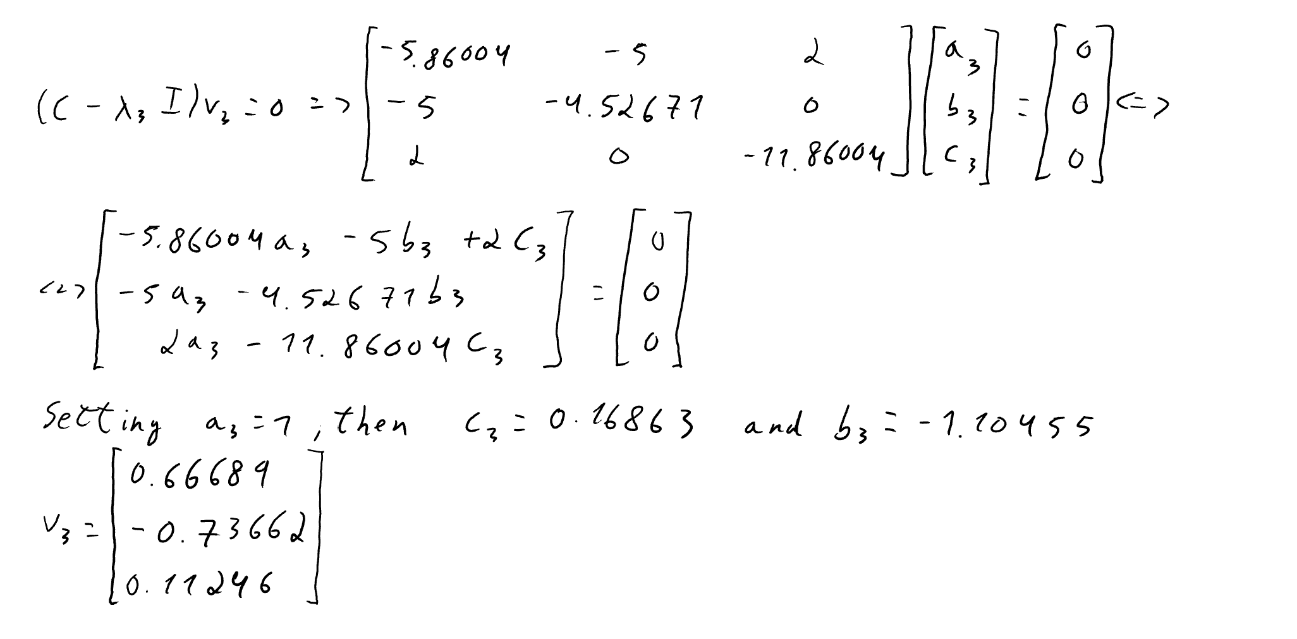 (C - λ₃ I)v₃ = 0 => [-5.86004 -5 2; -5 -4.52671 0; 2 0 -11.86004] [a₃; b₃; c₃] = [0; 0; 0] <=>
<=> [-5.86004a₃ - 5b₃ + 2c₃; -5a₃ - 4.52671b₃; 2a₃ - 11.86004c₃] = [0; 0; 0]
Setting a₃ = 1, then c₃ = 0.16863 and b₃ = -1.10455
v₃ = [0.66689; -0.73662; 0.11246]